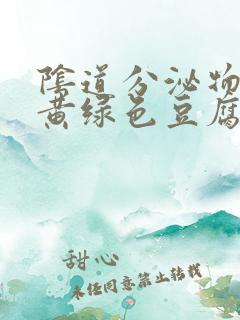 陰道分泌物
黄绿色豆腐
甜心
未经同意禁止转载